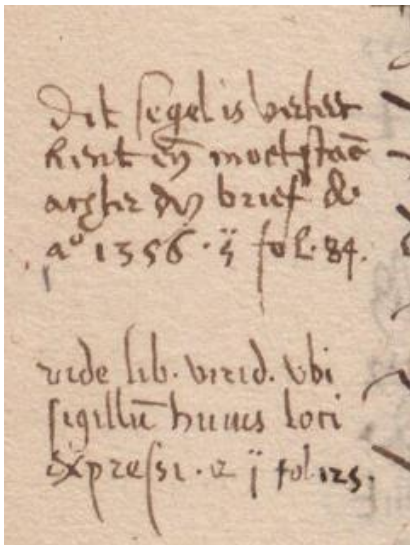 Dit segel is verkert
kent eñ moet staē
achter dē brief de
a° 1356 · ij fol · 84.
vide lib. virid. vbi
sigillū huius loci
expressi · ij fol 125.